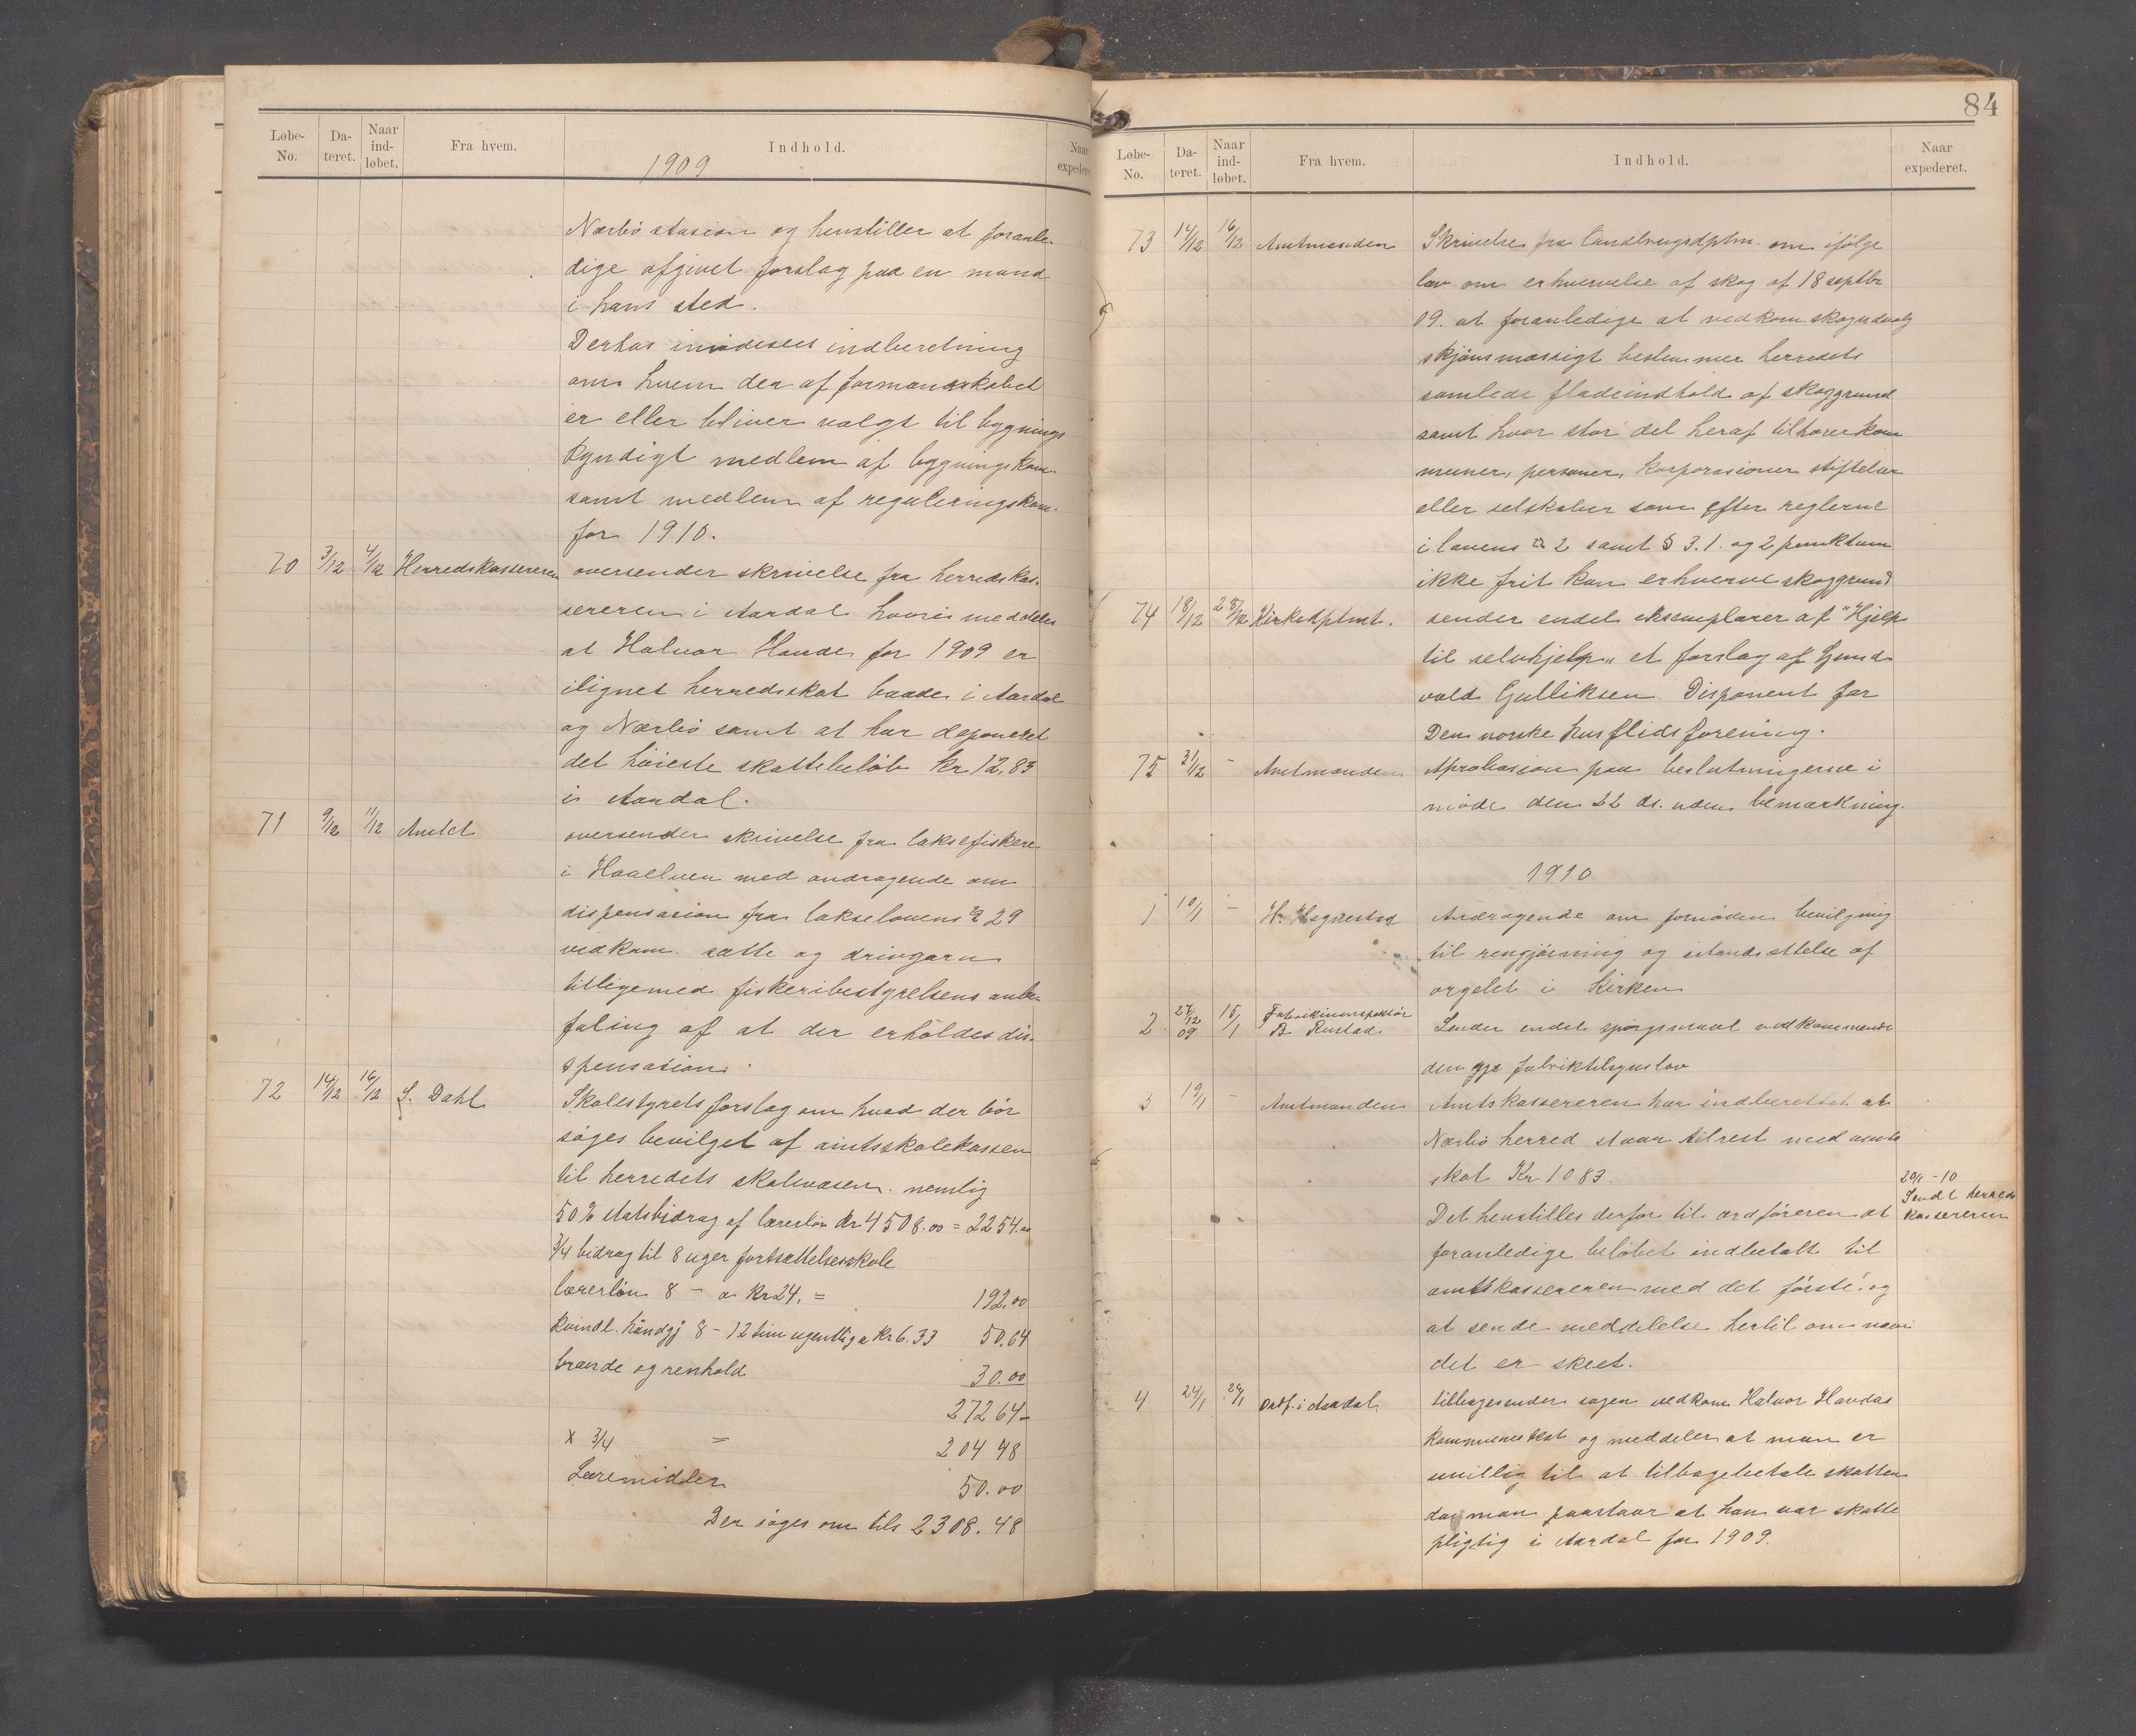 Løbe-No. Da-teret. Naar ind-løbet. Fra hvem. Indhold. Naar expederet
1909
Nærbö stasion og henstiller at foranle-
dige afgivet forslag paa en mand
i hans sted.
Derhos imödesees indberetning
om hvem der af formandskabet
er eller bliver valgt til bygnings
kyndigt medlem af bygningskom.
samt medlem af reguleringskom.
for 1910.
70 3/12 4/12 Herredskassereren oversender skrivelse fra herredskas-
sereren i Aardal hvori meddeles
at Halvor Haude for 1909 er
ilignet herredsskat baade i Aardal
og Nærbö samt at har deponeret
det höieste skattebelöb kr 12,83
i Aardal.
71 9/12 11/12 Amtet oversender skrivelse fra laksefiskere
i Haaelven med andragende om
dispensasion fra lakselovens § 29
vedkom. sætte og drivgarn
tilligemed fiskeribestyrelsens anbe-
faling af at der erholdes dis-
spensasion.
72 14/12 16/12 S. Dahl Skolestyrets forslag om hvad der bör
söges bevilget af amtsskolekassen
til herredets skolevæsen. nemlig
50 % statsbidrag af lærerlön kr 4508.00 = 2254.00
3/4 bidrag til 8 uger fortsættelsesskole
lærerlön 8 – a kr 24, = 192.00
kvindl. håndgj 8 – 12 tim ugentlig a kr 6.33 50.64
brænde og renhold 30.00
272 64
x 3/4 = 204 48
Læremidler 50.00
Der söges om tils 2308.48
84
Løbe-No. Da-teret. Naar ind-løbet. Fra hvem. Indhold. Naar expederet.
73 14/12 16/12 Amtmanden Skrivelse fra landbrugsdptm. om ifölge
lov om erhvervelse af skog af 18 septbr
09. at foranledige at vedkom. skogudvalg
skjönsmæssigt bestemmer herredets
samlede fladeindhold af skoggrund
samt hvor stor del heraf tilhører kom
muner, personer, korporasioner stiftelser
eller selskaber som efter reglerne
i lovens § 2 samt § 3.1. og 2 punktum
ikke frit kan erhverve skoggrund
74 18/12 28/12 Kirkedptmt. sender endel eksemplarer af "Hjelp
til selvhjelp" et forslag af Gund-
vald Gulliksen. Disponent for
Den norske husflidsforening.
75 31/12 – Amtmanden Aprobasion paa beslutningerne i
möde den 22 ds. uden bemærkning.
1910
1 10/1 – H. Hognestad Andragende om fornöden bevilgning
til rengjörning og istandsættelse af
orgelet i Kirken
2 27/12 09 15/1 Fabrikinnspektör
B. Rustad. Sender endel spörgsmaal vedkommende
den nye fabriktilsynslov
3 19/1 – Amtmanden Amtskassereren har indberettet at
Nærbö herred staar tilrest med amts
skat Kr 1083.
20/1 - 10
Sendt herreds
kassereren
Det henstilles derfor til ordföreren at
foranledige belöbet indbetalt til
amtskassereren med det förste og
at sende meddelelse hertil om naar
det er skeet.
4 24/1 29/1 Ordf. i Aardal tilbagesender sagen vedkom Halvor Haudas
kommuneskat og meddeler at man er
uvillig til at tilbagebetale skatten
da man paastaar at han var skatte
pligtig i Aardal for 1909.